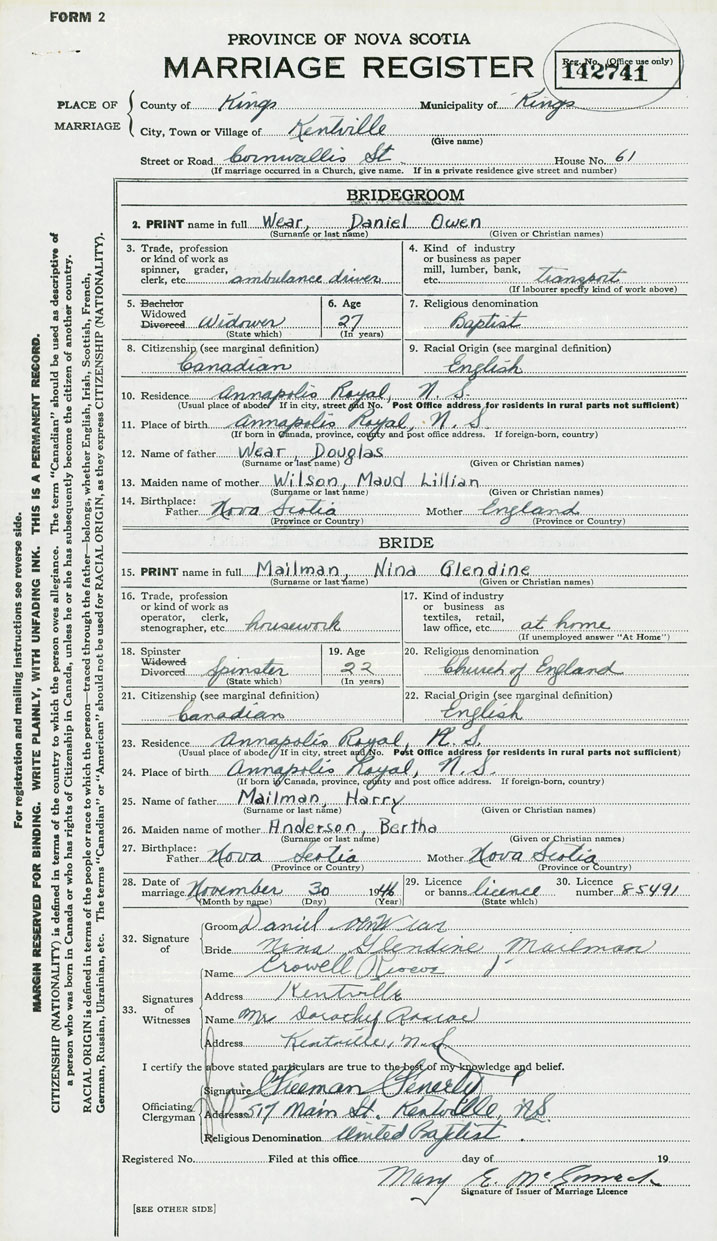 FORM 2
PROVINCE OF NOVA SCOTIA
MARRIAGE REGISTER
Reg. No. (Office use only)
142741
PLACE OF MARRIAGE
County of Kings Municipality of Kings
City, Town or Village of Kentville
(Give name)
Street or Road Cornwallis St. House No. 61
(If marriage occurred in a Church, give name. If in a private residence give street and number)
BRIDEGROOM
2. PRINT name in full Wear, Daniel Owen
(Surname or last name) (Given or Christian names)
3. Trade, profession or kind of work as spinner, grader, clerk, etc. ambulance driver
4. Kind of industry or business as paper mill, lumber, bank, etc. transport
(If labourer specify kind of work above)
5. Bachelor Widowed Divorced Widower
(State which)
6. Age 27
(In years)
7. Religious denomination Baptist
8. Citizenship (see marginal definition) Canadian
9. Racial Origin (see marginal definition) English
10. Residence Annapolis Royal, N. S.
(Usual place of abode. If in city, street and No. Post Office address for residents in rural parts not sufficient)
11. Place of birth Annapolis Royal, N. S.
(If born in Canada, province, county and post office address. If foreign-born, country)
12. Name of father Wear, Douglas
(Surname or last name) (Given or Christian names)
13. Maiden name of mother Wilson, Maud Lillian
(Surname or last name) (Given or Christian names)
14. Birthplace: Father Nova Scotia Mother England
(Province or Country) (Province or Country)
BRIDE
15. PRINT name in full Mailman, Nina Glendine
(Surname or last name) (Given or Christian names)
16. Trade, profession or kind of work as operator, clerk, stenographer, etc. housework
17. Kind of industry or business as textiles, retail, law office, etc. at home
(If unemployed answer "At Home")
18. Spinster Widowed Divorced Spinster
(State which)
19. Age 22
(In years)
20. Religious denomination Church of England
21. Citizenship (see marginal definition) Canadian
22. Racial Origin (see marginal definition) English
23. Residence Annapolis Royal, N. S.
(Usual place of abode. If in city, street and No. Post Office address for residents in rural parts not sufficient)
24. Place of birth Annapolis Royal, N. S.
(If born in Canada, province, county and post office address. If foreign-born, country)
25. Name of father Mailman, Harry
(Surname or last name) (Given or Christian names)
26. Maiden name of mother Anderson, Bertha
(Surname or last name) (Given or Christian names)
27. Birthplace: Father Nova Scotia Mother Nova Scotia
(Province or Country) (Province or Country)
28. Date of marriage November 30 1946
(Month by name) (Day) (Year)
29. Licence or banns licence
(State which)
30. Licence number 85491
32. Signature of
Groom Daniel Wear
Bride Nina Glendine Mailman
33. Signatures of Witnesses
Name Crowell
Address Kentville
Name Mrs Dorothy Roscoe
Address Kentville, N.S.
I certify the above stated particulars are true to the best of my knowledge and belief.
Officiating Clergyman
Signature Freeman Fenerty
Address 517 Main St. Kentville, N.S.
Religious Denomination United Baptist.
Registered No. Filed at this office day of 19
Mary E.
Signature of Issuer of Marriage Licence
[SEE OTHER SIDE]
For registration and mailing instructions see reverse side.
MARGIN RESERVED FOR BINDING. WRITE PLAINLY, WITH UNFADING INK. THIS IS A PERMANENT RECORD.
CITIZENSHIP (NATIONALITY) is defined in terms of the country to which the person owes allegiance. The term "Canadian" should be used as descriptive of
a person who was born in Canada or who has rights of Citizenship in Canada, unless he or she has subsequently become the citizen of another country.
RACIAL ORIGIN is defined in terms of the people or race to which the person—traced through the father—belongs, whether English, Irish, Scottish, French,
German, Russian, Ukrainian, etc. The terms "Canadian" or "American" should not be used for RACIAL ORIGIN, as they express CITIZENSHIP (NATIONALITY).